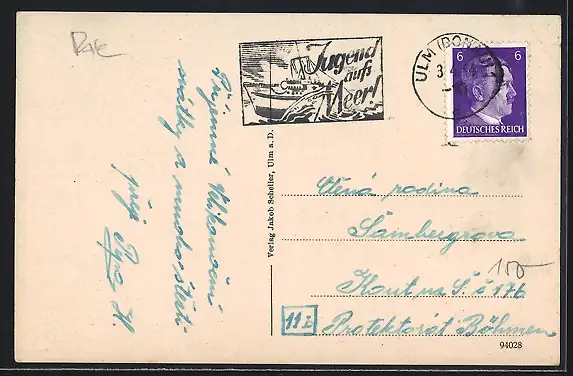 Rare
Jugend
aufs
Meer!
ULM (DONAU)
6 6
DEUTSCHES REICH
Příjemné Velikonoční
svátky a mnoho štěstí
přejí
H.
Verlag Jakob Scheller, Ulm a. D.
Ctěná rodina
Šambergrova
100
Kout na Š. č 176
11b
Protektorát Böhmen
94028